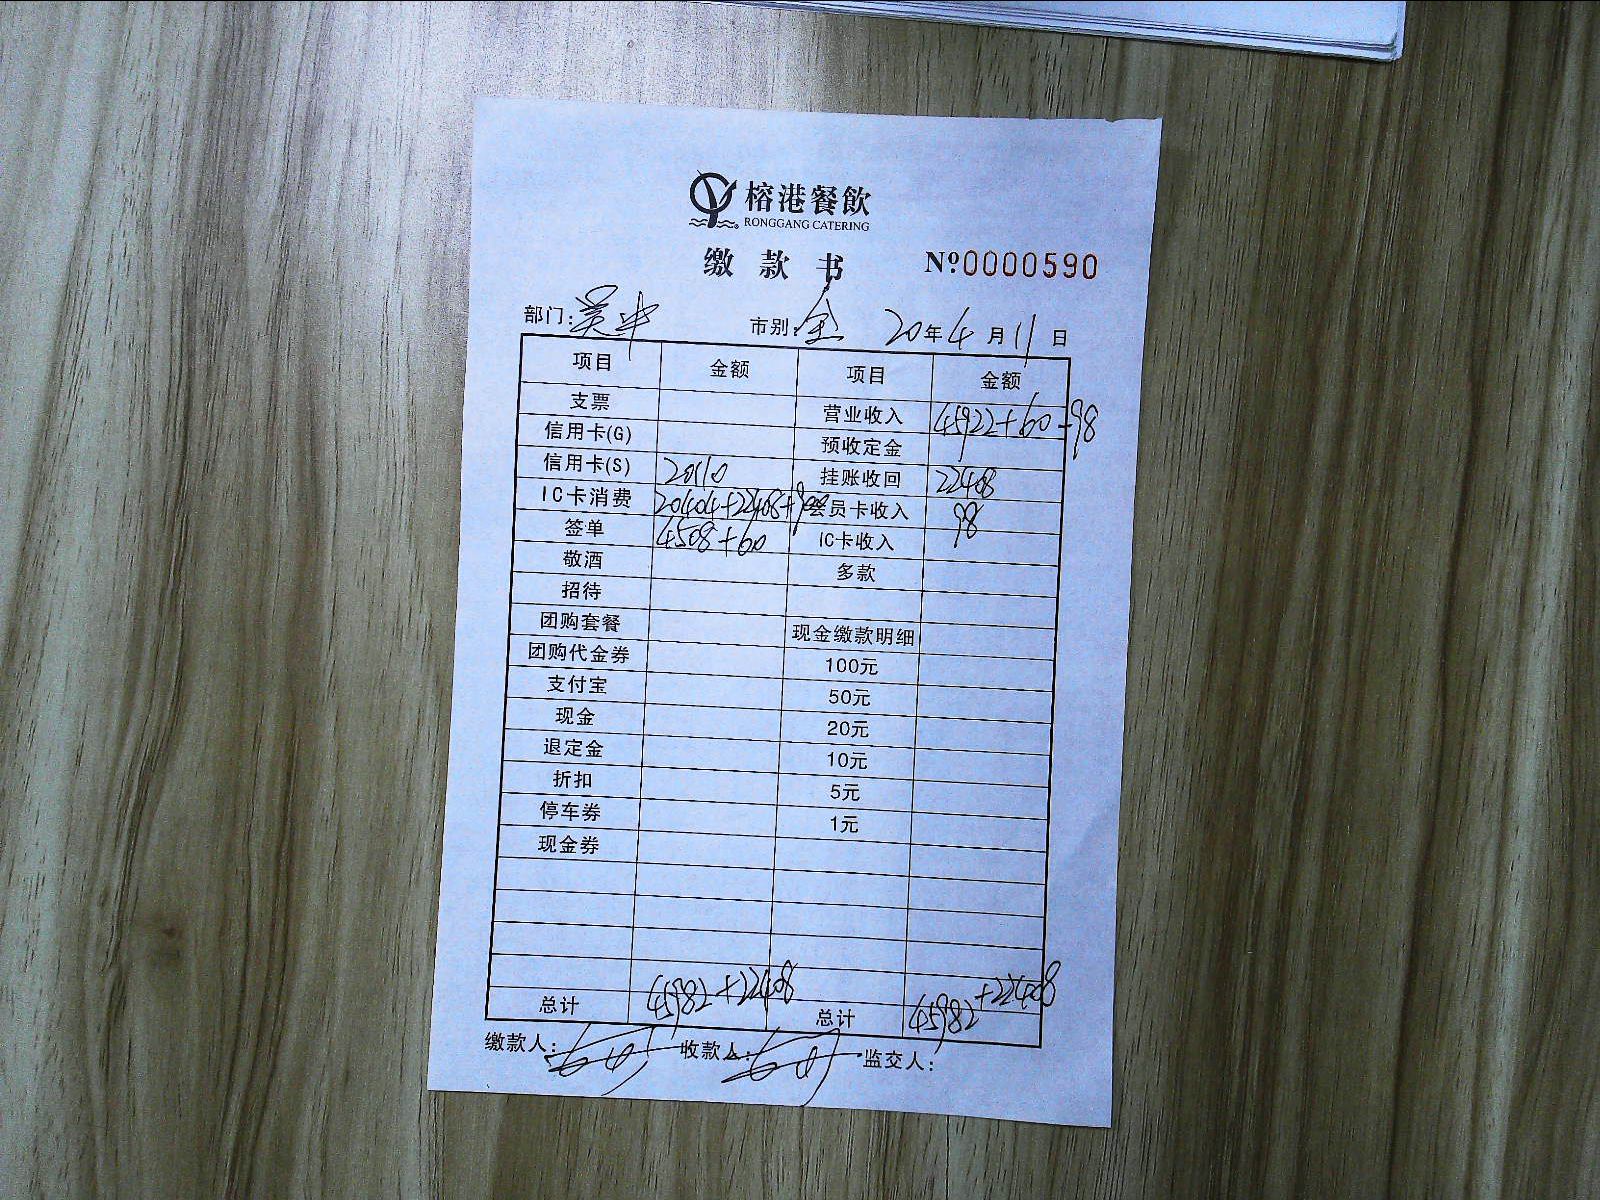 榕港餐飲
RONGGANG CATERING
缴款书 Nº0000590
部门: 吴中 市别: 全 20年4月11日
项目 金额 项目 金额
支票 营业收入 45922+60-98
信用卡(G) 预收定金
信用卡(S) 20110 挂账收回 22408
IC卡消费 20404+22408+900 会员卡收入 98
签单 4508+60 IC卡收入
敬酒 多款
招待
团购套餐 现金缴款明细
团购代金券 100元
支付宝 50元
现金 20元
退定金 10元
折扣 5元
停车券 1元
现金券
总计 45982+22408 总计 45982+22408
缴款人: 收款人: 监交人: